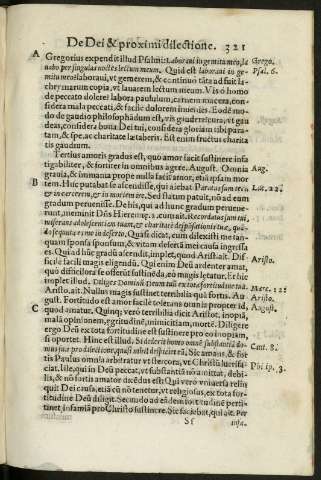 De Dei & proximi dilectione. 321
A Gregorius expendit illud Psalmi: Laboravi in gemitu meo, la Grego.
vabo per singulas noctes lectum meum. Quid est laboravi in ge Psal. 6.
mitu meo? laboravi, vt gemerem, & continuo tāta ad fuit la-
chrymarum copia, vt lauarem lectum meum. Vis ô homo
de peccato dolere? labora paululum, carnem macera, consi-
dera mala peccati, & facile dolorem inuenies. Eodē mo-
do de gaudio philosophādum est, vis gaudere, vt gau
deas, considera bona Dei tui, considera gloriam tibi para-
tam, & spe ac charitate lætaberis. Est enim fructus charita
tis gaudium.
Tertius amoris gradus est, quo amor facit sustinere infa
tigabiliter, & fortiter in omnibus agere. August. Omnia Aug.
grauia, & immania prope nulla facit amor, etiā ipsam mor
B tem. Huc putabat se ascendisse, qui aiebat Paratus sum tecū Luc. 22.
& in carcerem, & in mortem ire. Sed statum patuit, nō ad eum
gradum peruenisse. De his, qui ad hunc gradum peruene-
runt, meminit Dn̄s Hierem. 2. Recordatus sum tui,
miserans adolescentiam tuam, & charitatē desponsationis tuæ, quā-
do sequuta es me in deserto. Quasi dicat, cum dilexisti me tan-
quam sponsa sponsum, & vitam deserta mei causa ingressa
es. Qui ad hūc gradū ascendit, implet, quod Aristo. ait. Dif- Aristo.
ficile facilè magis eligendū. Qui enim Deū ardenter amat,
quo difficiliora se offerūt sustinēda, eò magis letatur. Et hic
implet illud. Diliges Dominū Deum tuū ex tota fortitudine tua. Marc. 12.
Aristo. ait. Nullus magis sustinet terribilia quā fortis. Au Aristo.
gust. Fortitudo est amor facilè tolerans omnia propter id, August.
C quod amatur. Quinq; verò terribilia dicit Aristot. inopiā,
mala opinionem, ęgritudinē, inimicitiam, mortē. Diligere
ergo Deū ex tota fortitudine est sustinere pro eo inopiam,
si oportet. Hinc est illud. Si dederit homo omnē substantiā do- Cant. 8.
mus suæ pro dilectione, quasi nihil despiciet eā. Sic amans, & for
tis Paulus omnia arbitratur vt stercora, vt Christū lucrifa- Philip. 3.
ciat. Ille, qui in Deū peccat, vt substantiā nō amittat, debi-
lis, & nō fortis amator dicēdus est: Qui verò vniuersa relin
quit Dei causa, etiā cū non tenetur, vt religiosus, ex tota for-
titudine Deū diligit. Secundo ad eādem fortitudinē perti-
tinet infamiā pro Christo sustinere. Sic faciebat, qui ait. Per
Sf infa.